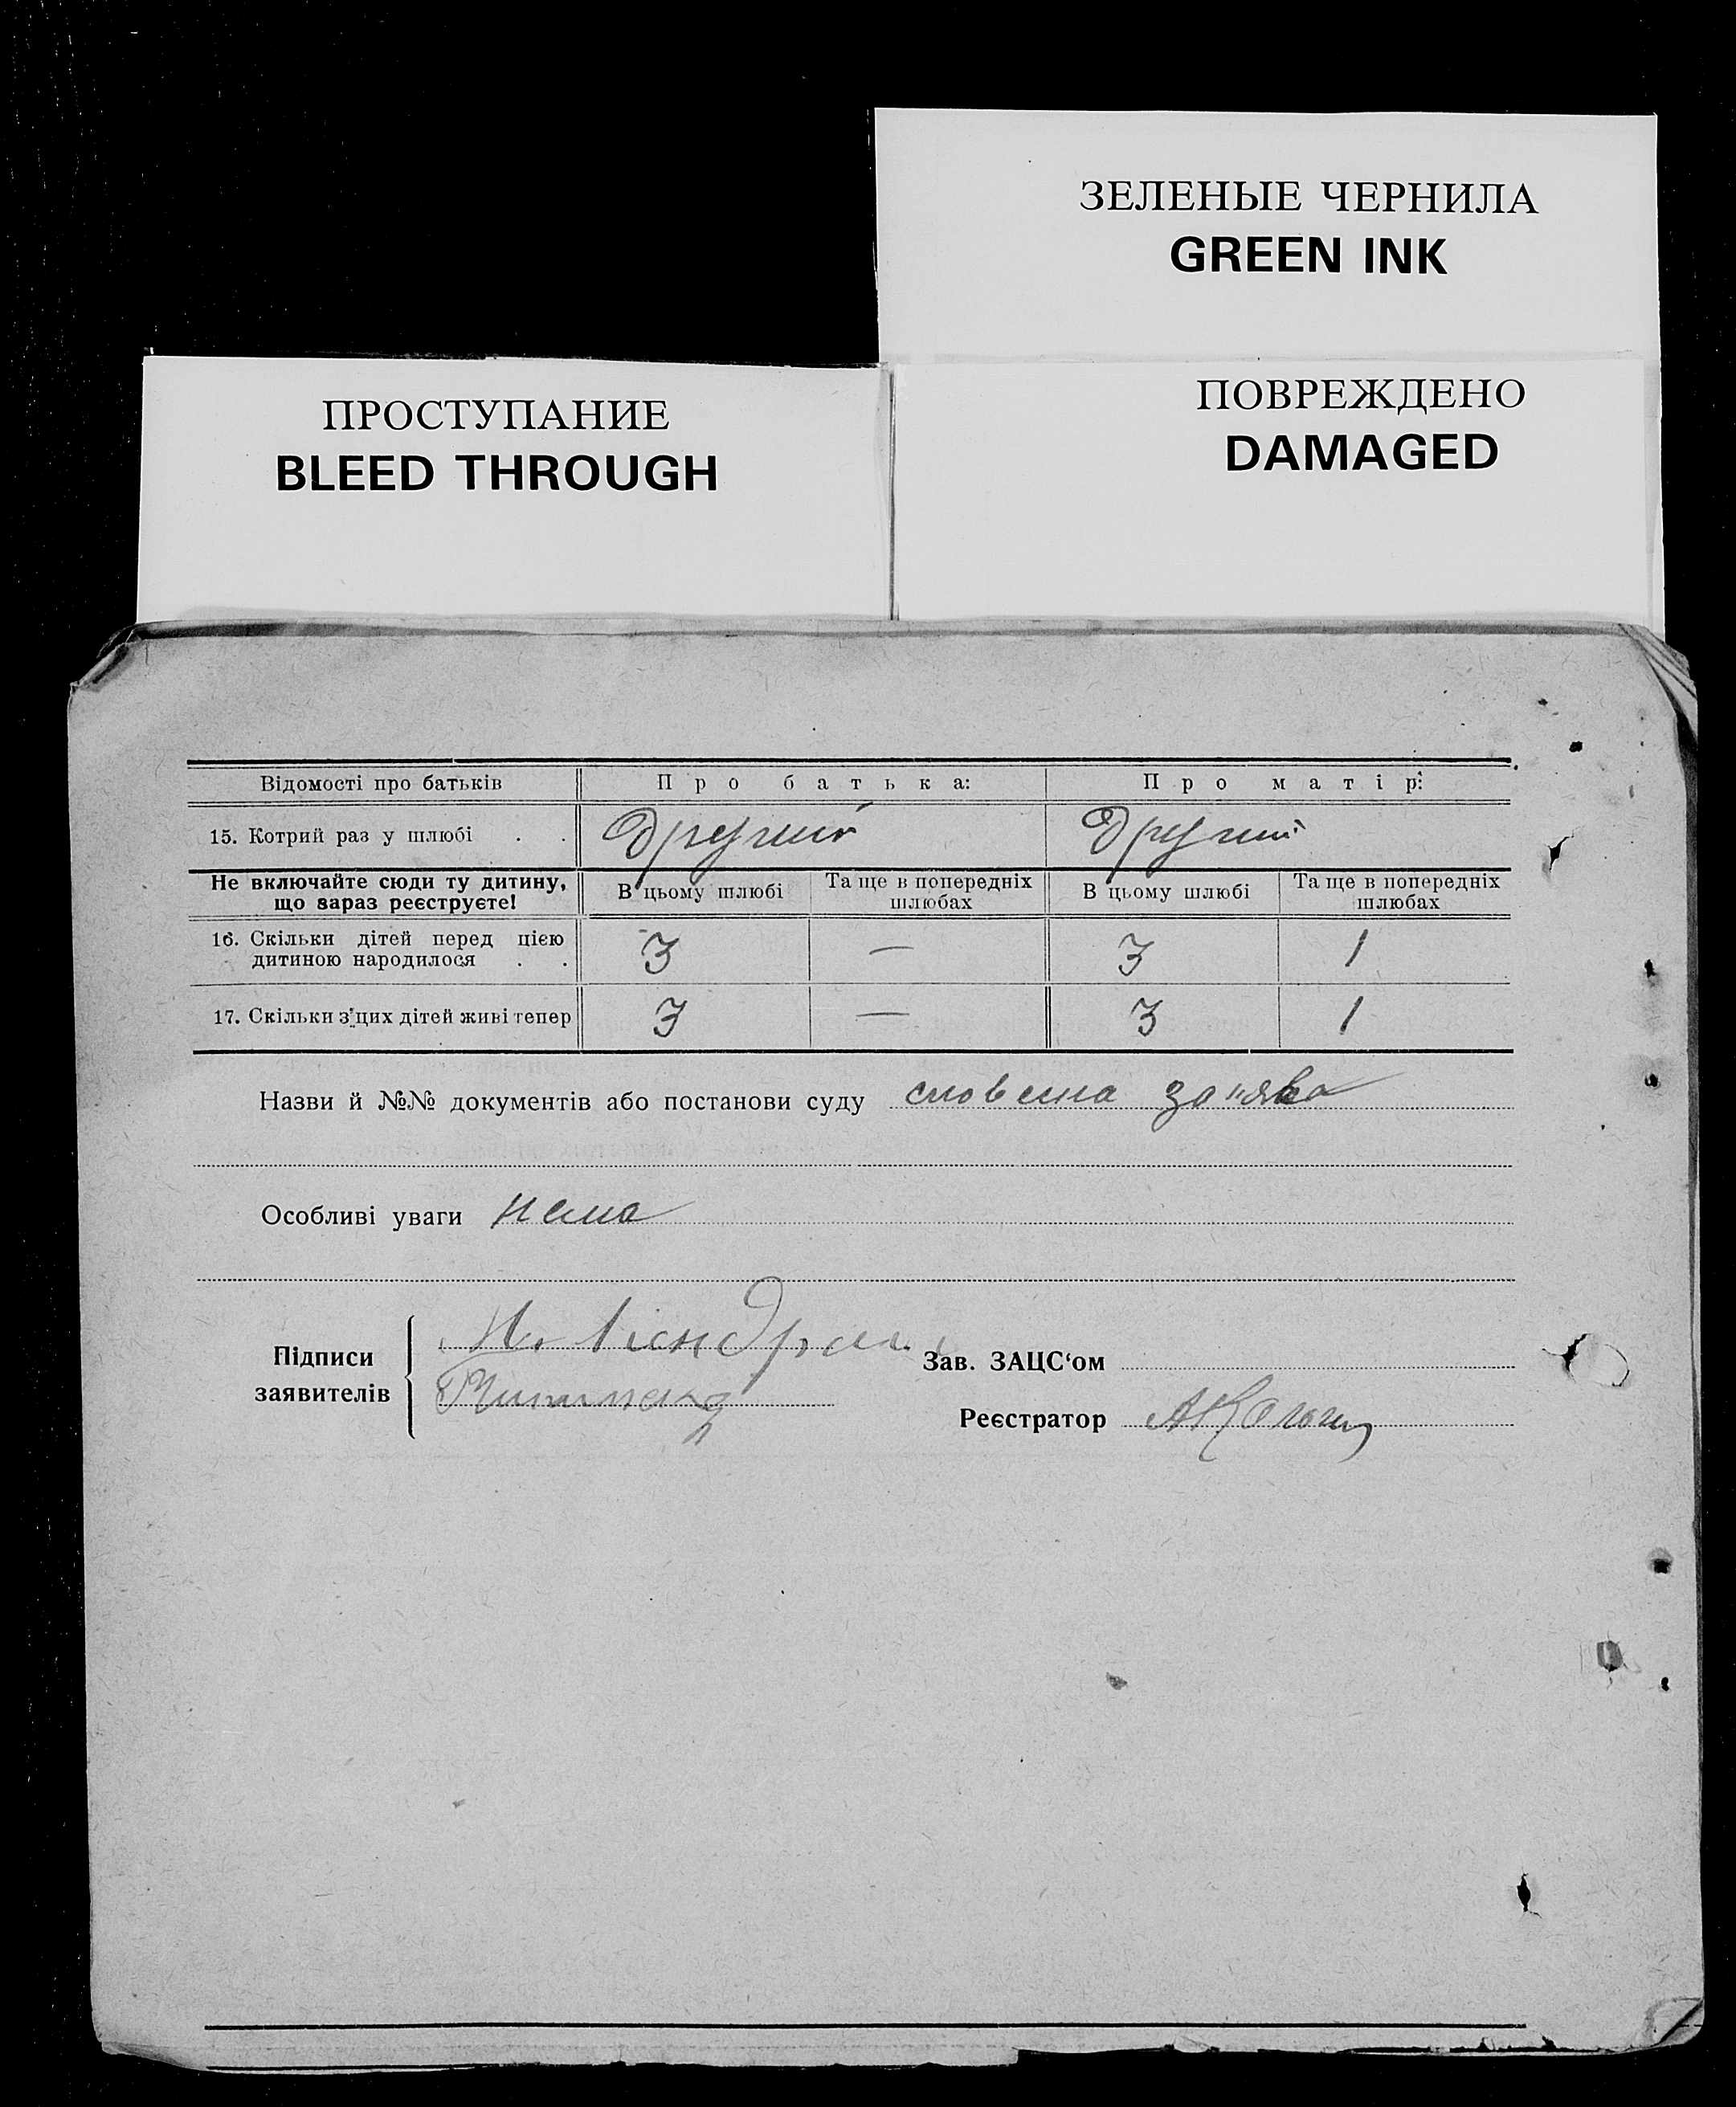 ЗЕЛЕНЫЕ ЧЕРНИЛА
GREEN INK
ПРОСТУПАНИЕ
BLEED THROUGH
ПОВРЕЖДЕНО
DAMAGED
Відомості про батьків Про батька: Про матір:
15. Котрий раз у шлюбі . . Другий Другий
Не включайте сюди ту дитину, що зараз реєструєте! В цьому шлюбі Та ще в попередніх шлюбах В цьому шлюбі Та ще в попередніх шлюбах
16. Скільки дітей перед цією дитиною народилося . . 3 — 3 1
17. Скільки з цих дітей живі тепер 3 — 3 1
Назви й №№ документів або постанови суду словесна заява
Особливі уваги нема
Підписи заявителів
Зав. ЗАЦС‘ом
Реєстратор